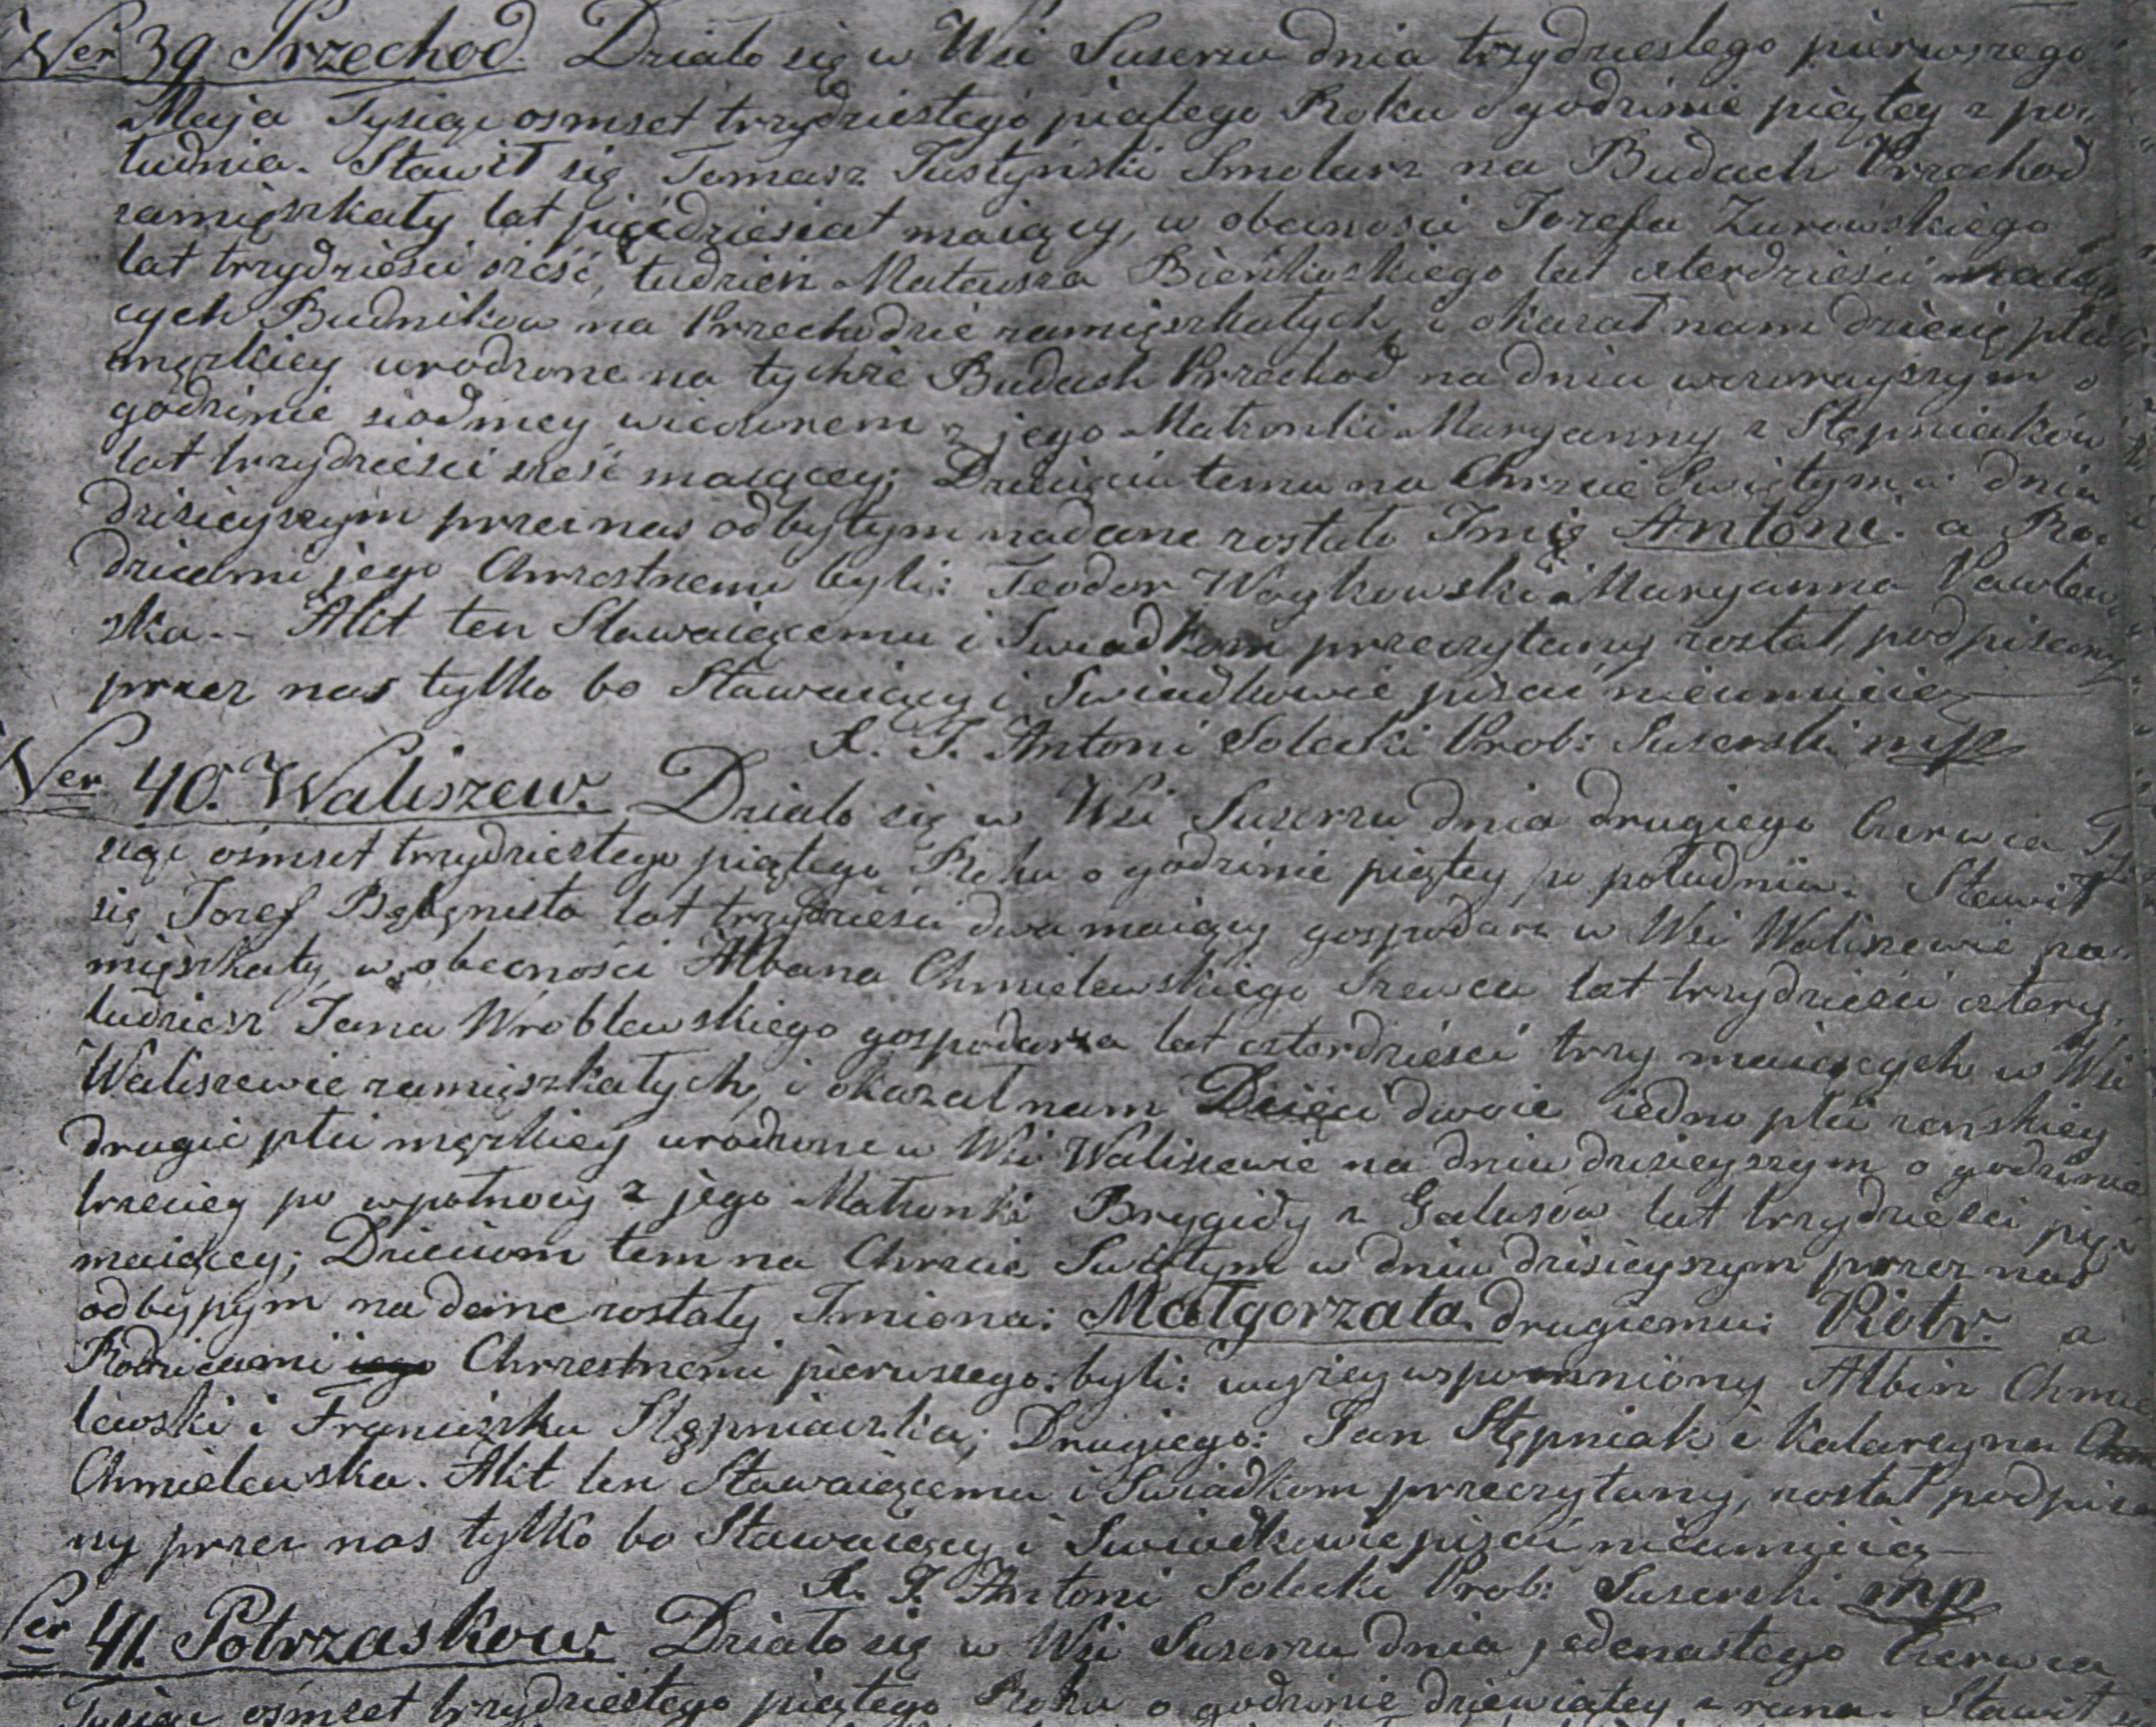 Ner 39 Przechod. Działo się w Wsi Suserzu dnia trzydziestego pierwszego
Maja Tysiąc osmset trzydziestego piątego Roku o godzinie piątey z po
łudnia. Stawił się Tomasz Justyński Smolarz na Budach Przechod
zamięszkały lat pięćdziesiat maiący, w obecnosci Jozefa Zurowskiego
lat trzydziesci sześć, tudzież Mateusza Bieńkoskiego lat czterdziesci maią
cych Budnikow na Przechodzie zamięszkałych, i okazał nam dziecię płci
męzkiey urodzone na tychże Budach Przechod na dniu wczorayszym o
godzinie siodmey wieczorem z jego Małzonki Maryanny z Stępniaków
lat trzydziesci sześć maiącey; Dziecięciu temu na Chrzcie Swiętym w dniu
dzisieyszym przez nas odbytym nadane zostało Imię Antoni. a Ro
dzicami jego Chrzestnemi byli: Teodor Woykowski i Maryanna Pawlew
ska. Akt ten Stawaiącemu i Swiadkom przeczytany został, podpisany
przez nas tylko bo Stawaiący i Swiadkowie pisać nieumieią
X. J. Antoni Solecki Prob: Suserski mp
Ner 40. Waliszew. Działo się w Wsi Suserzu dnia drugiego Czerwca Ty
siąc ośmset trzydziestego piątego Roku o godzinie piątey po południu. Stawił
się Jozef lat trzydzieści dwa maiący gospodarz w Wsi Waliszewie za
mięszkały, w obecności Albana Chmielewskiego Szewca lat trzydzieści cztery,
tudziesz Jana Wroblewskiego gospodarza lat czterdzieści trzy maiących w Wsi
Waliszewie zamięszkałych, i okazał nam Dzieci dwoie iedno płci zeńskiey
drugie płci męzkiey urodzone w Wsi Waliszewie na dniu dzisieyszym o godzinie
trzeciey po wpołnocy z jego Małzonki Brygidy z Galusów lat trzydzieści pięć
maiącey; Dzieciom tem na Chrzcie Swiętym w dniu dzisieyszym przez nas
odbypym nadane zostały Imiona: Małgorzata. drugiemu: Piotr. a
Rodzicami iego Chrzestnemi pierwszego: byli: wyżey wspomniony Albin Chmie
lewski i Franciszka Stępniaczka; Drugiego: Jan Stępniak i Katarzyna
Chmielewska. Akt ten Stawaiącemu i Swiadkom przeczytany, został podpisa
ny przez nas tylko bo Stawaiący i Swiadkowie pisać nieumieią
X. J. Antoni Solecki Prob: Suserski mp
Ner 41. Potrzaskow. Działo się w Wsi Suserzu dnia jedenastego Czerwca
Tysiąc ośmset trzydziestego piątego Roku o godzinie dziewiątey z rana. Stawił